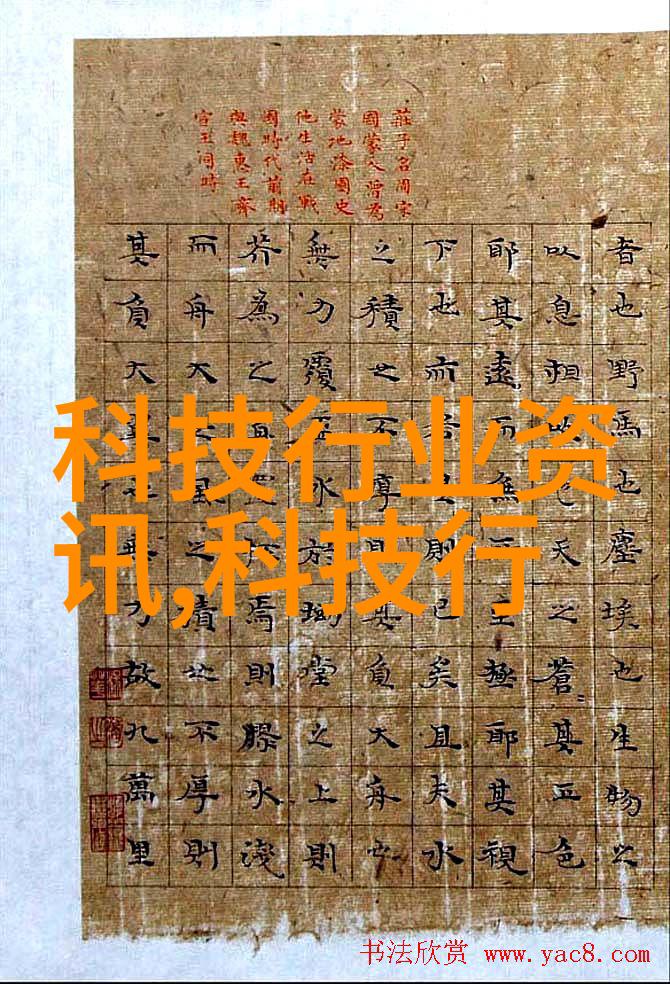 莊子名周宋
國蒙人曾為
蒙地漆園史
他生活在戰
國時代前期
與魏惠王齊
宣王同時
者也野馬也塵埃也生物之
以息相吹也天之蒼〻其正色
耶其遠而無所至極耶其視
下也亦若是則已矣且夫水
之積也不厚則其負大舟也
無力覆杯水於坳堂之上則
芥為之舟置杯焉則膠水淺
而舟大也風之積也不厚則
其負大翼也無力故九萬里
科技行业资
讯,科技行
书法欣赏 www.yac8.com